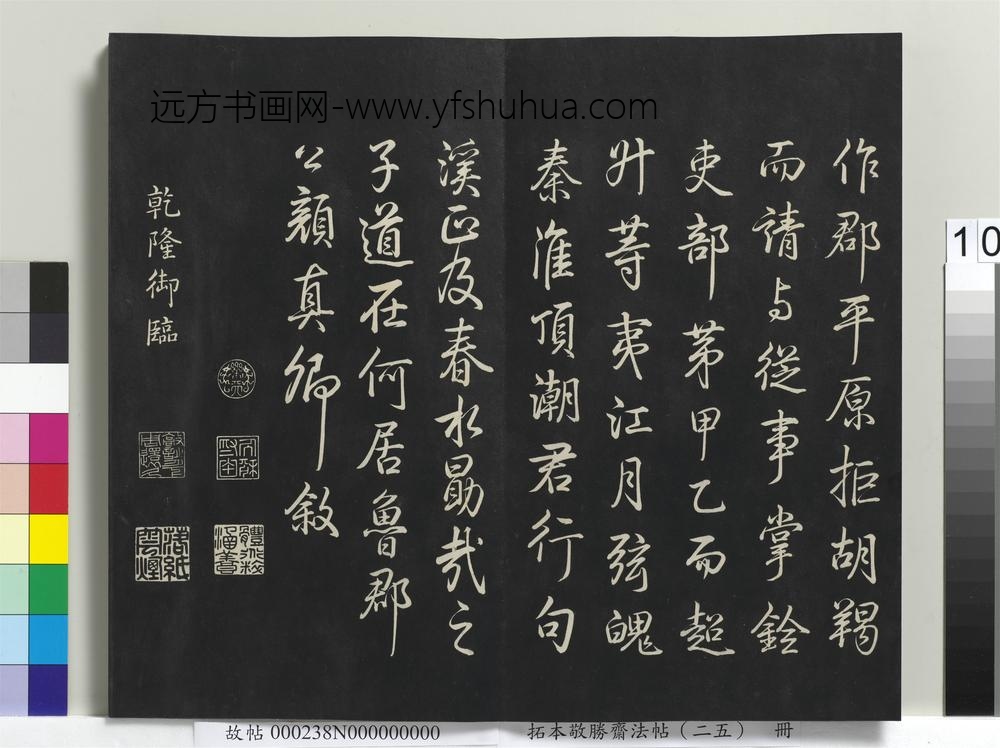 远方书画网-www.yfshuhua.com
作郡平原拒胡羯
而請与從事掌銓
吏部苐甲乙而超
升等夷江月弦魄
秦淮頂潮君行句
溪正及春水勖哉之
子道在何居魯郡
公顔真卿敘
乾隆御臨
落紙雲煙
10
故帖 000238N000000000
拓本敬勝齋法帖（二五） 冊